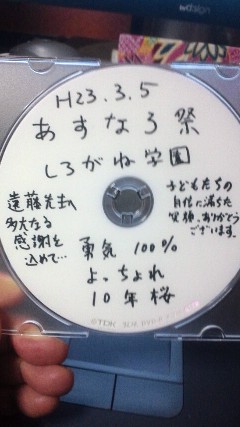 H23.3.5
あすなろ祭
しろがね学園
遠藤先生へ
多大なる
感謝を
込めて…
子どもたちの
自信に満ちた
笑顔、ありがとう
ございます。
勇気 100%
よっちょれ
10年桜
TDK
design